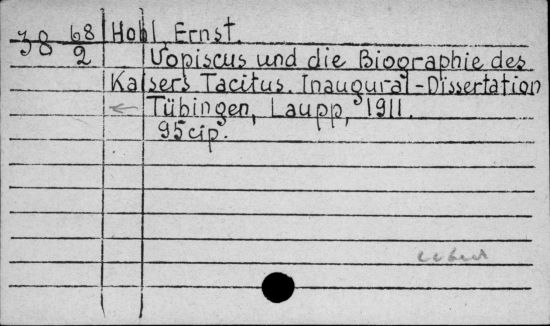 38 68 Hohl, Ernst.
2 Vopiscus und die Biographie des
Kaisers Tacitus. Inaugural-Dissertation
← Tübingen, Laupp, 1911.
95cip.